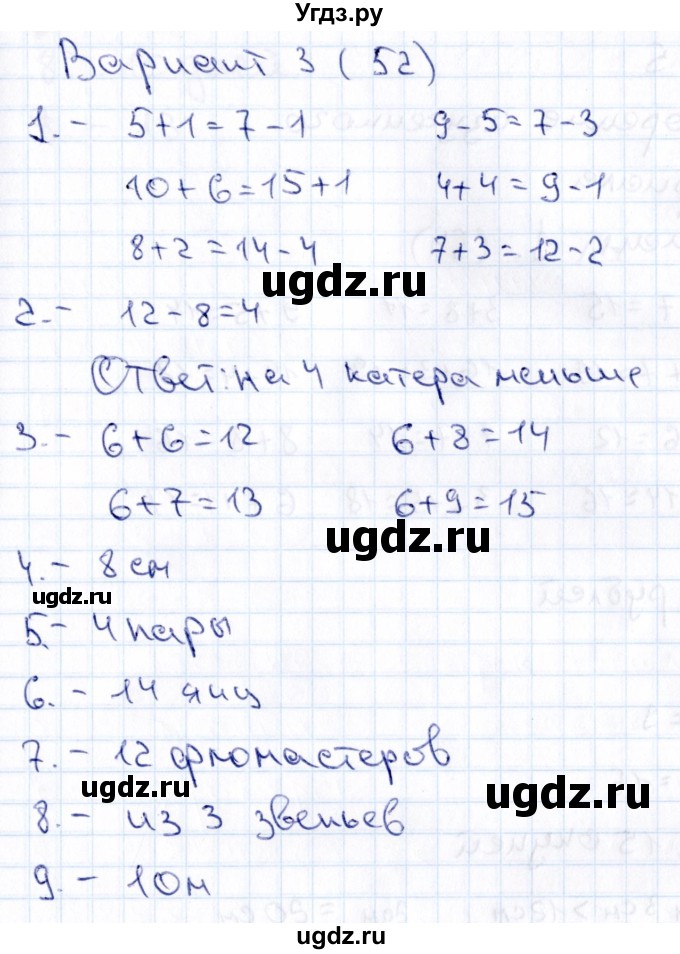 Угдз.ру
Вариант 3 (52)
1.- 5+1=7-1 9-5=7-3
10+6=15+1 4+4=9-1
8+2=14-4 7+3=12-2
ugdz.ru
2.- 12-8=4
Ответ: на 4 катера меньше
3.- 6+6=12 6+8=14
6+7=13 6+9=15
ugdz.ru
4.- 8 см
ugdz.ru
5.- 4 пары
6.- 14 яиц
7.- 12 фломастеров
ugdz.ru ugdz.ru
8.- из 3 звеньев
9.- 10м
ugdz.ru